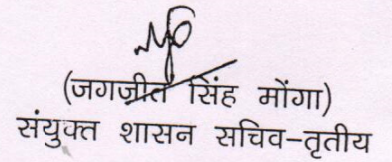 (जगजीत सिंह मोंगा)
संयुक्त शासन सचिव-तृतीय